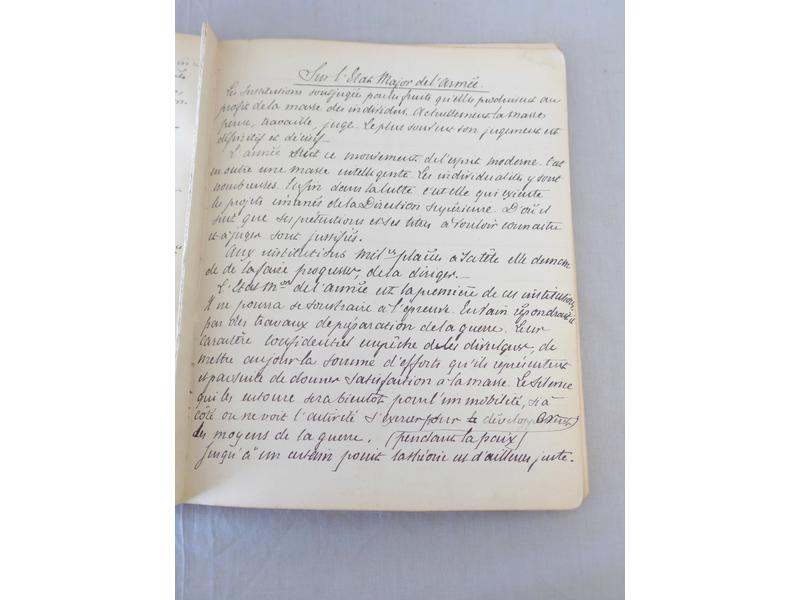 Sur l'Etat Major de l'armée.
Les Institutions sont jugées par les fruits qu'elles produisent au
profit de la masse des individus. Actuellement la masse
pense, travaille, juge. Le plus souvent son jugement est
définitif et décisif.
L'armée suit ce mouvement de l'esprit moderne. C'est
en outre une masse intelligente. Les individualités y sont
nombreuses. Enfin dans la lutte c'est elle qui exécute
les projets émanés de la Direction Supérieure. D'où il
suit que ses prétentions et ses titres à vouloir connaître
et à juger sont justifiés.
Aux institutions Milres placées à sa tête elle deman
de de la faire progresser, de la diriger.
L'Etat Mor de l'armée est la première de ces institutions
Il ne pourra se soustraire à l'épreuve. En vain répondrait-il
par des travaux de préparation de la guerre. Leur
caractère confidentiel empêche de les divulguer, de
mettre au jour la somme d'efforts qu'ils représentent
et par suite de donner satisfaction à la masse. Le silence
qui les entoure sera bientôt pour l'immobilité, si à
côté on ne voit l'activité s'exercer sur le développement
des moyens de la guerre. (pendant la paix)
Jusqu'à un certain point la théorie est d'ailleurs juste.